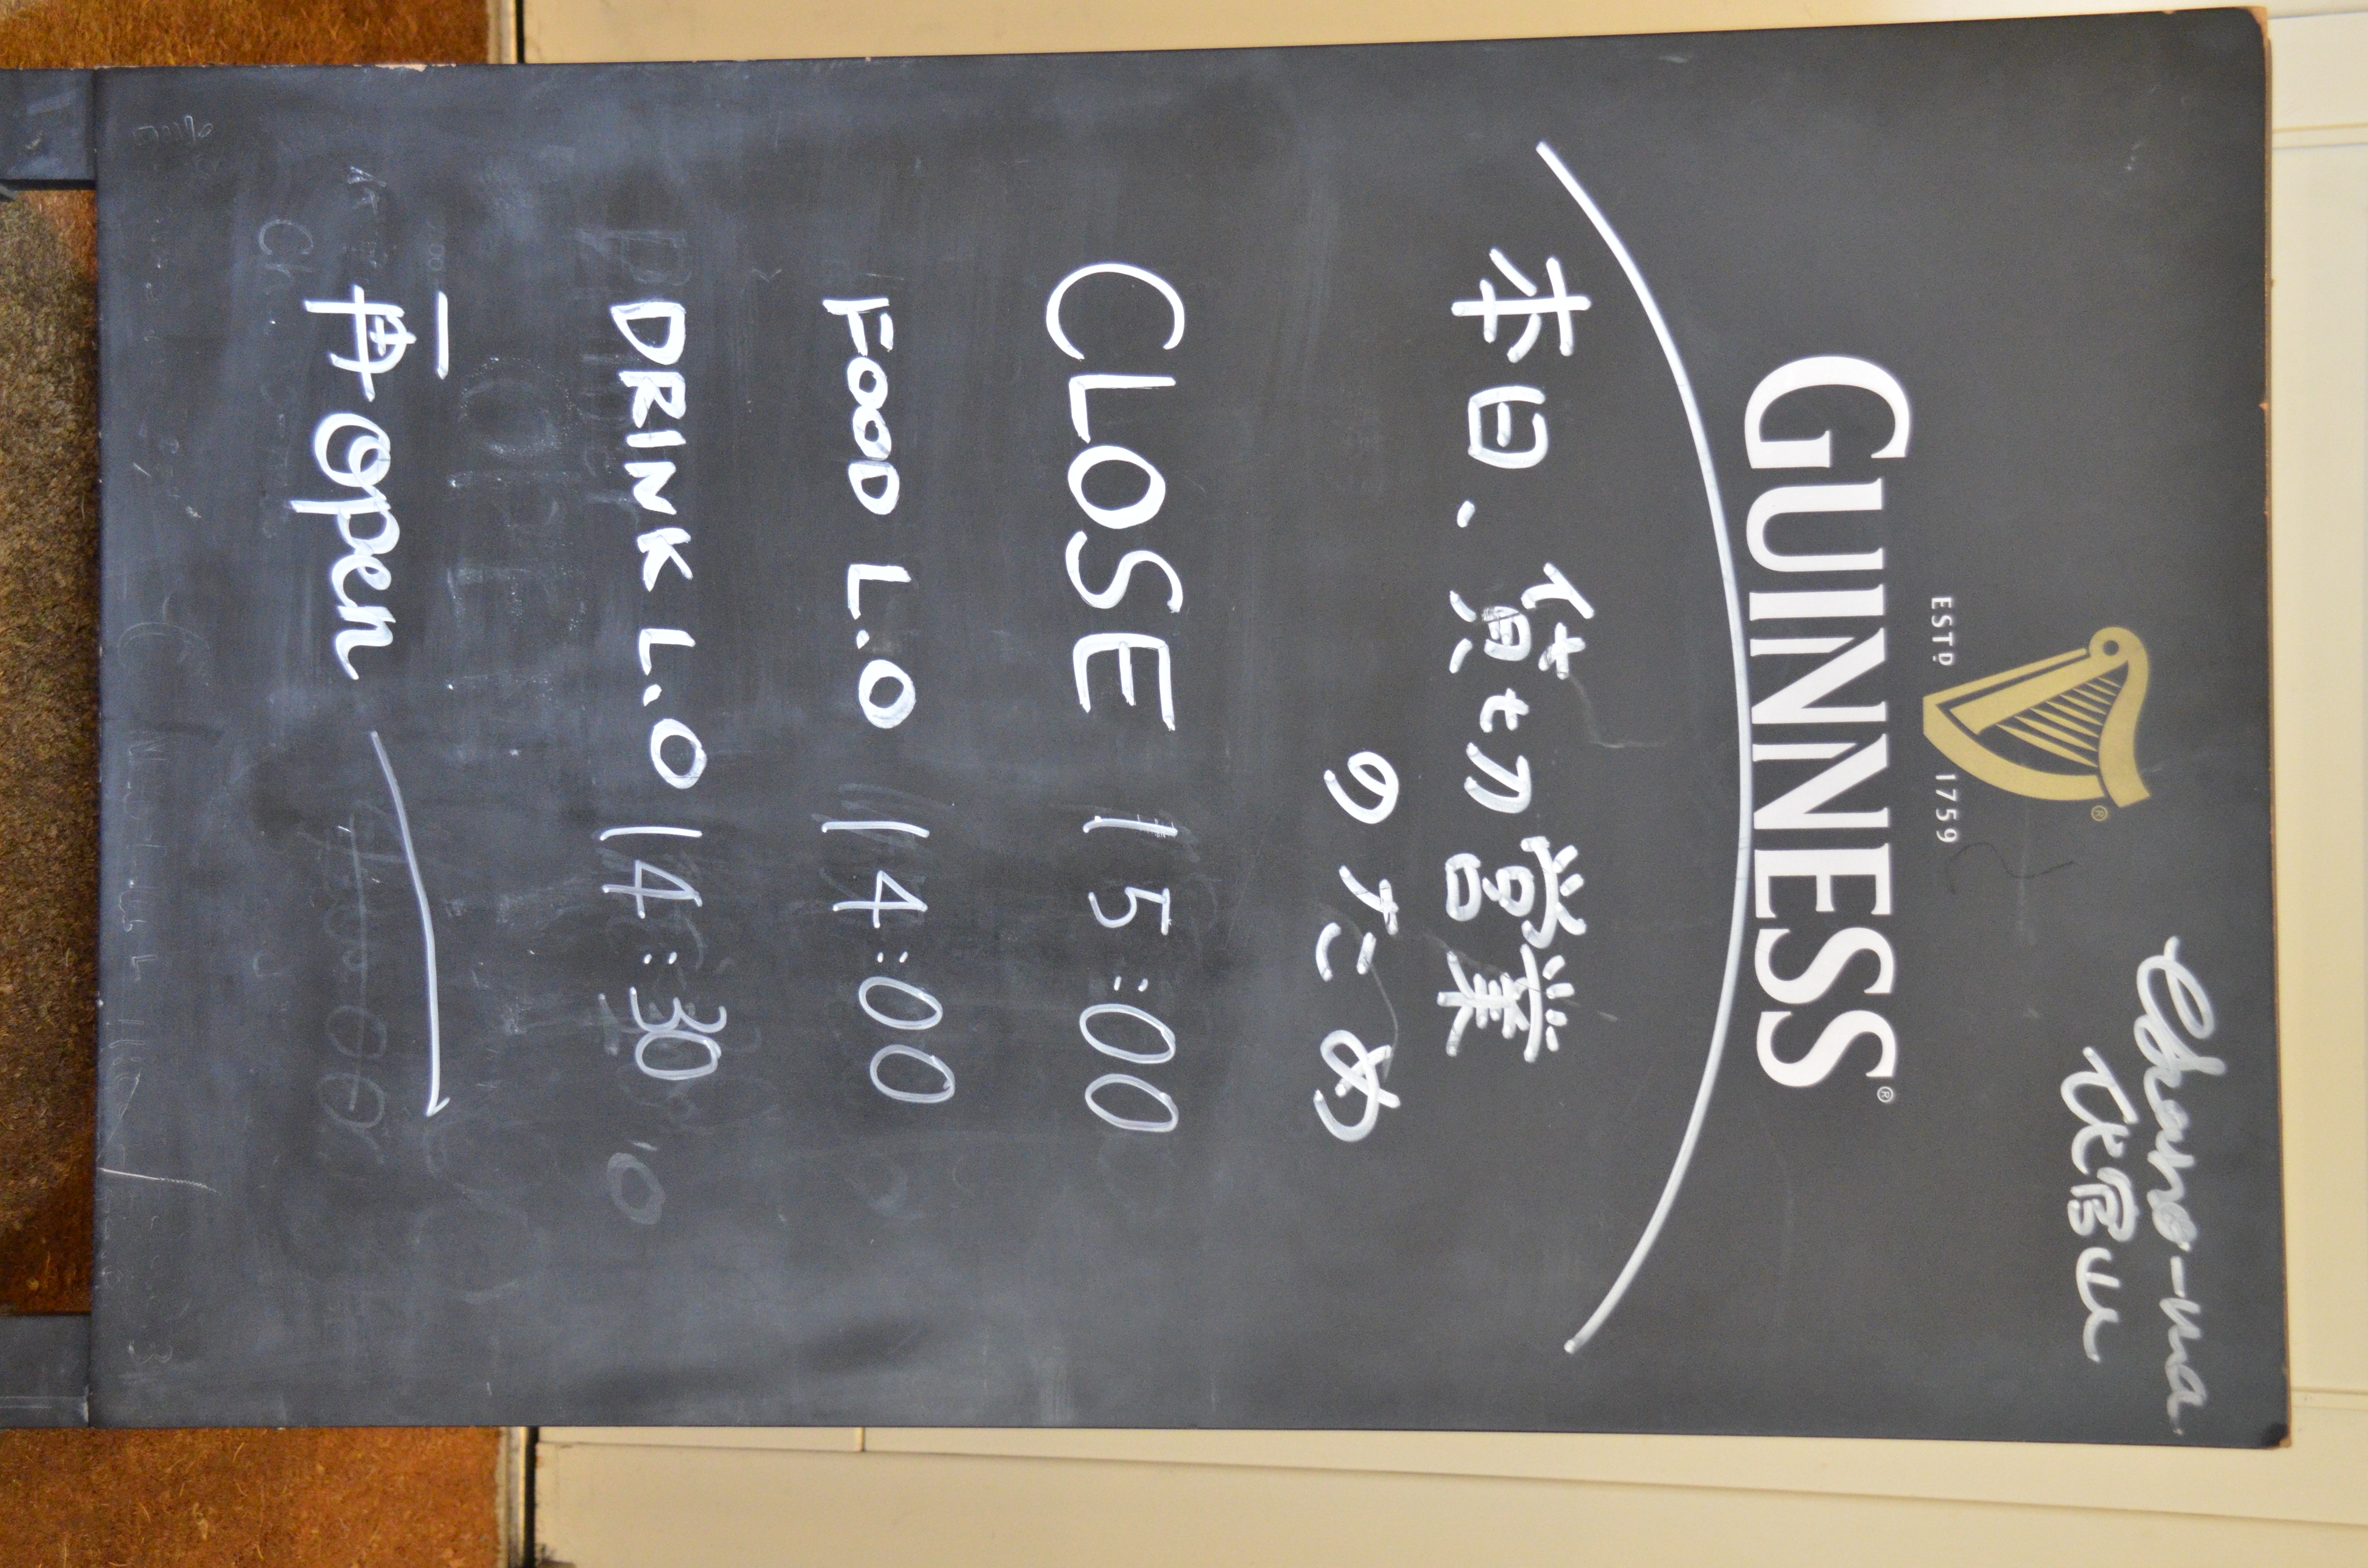 Chano-ma
代官山
ESTD 1759
GUINNESS®
本日、貸切営業
のため
CLOSE 15:00
FOOD L.O 14:00
DRINK L.O 14:30
再Open